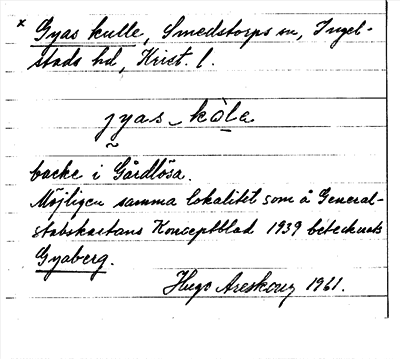 x Gyas kulle, Smedstorps sn, Ingel-
stads hd, Krist. l.
jyas kòla
backe i Gårdlösa.
Möjligen samma lokalitet som å General-
stabskartans Konceptblad 1939 betecknats
Gyaberg.
Hugo Areskoug 1961.